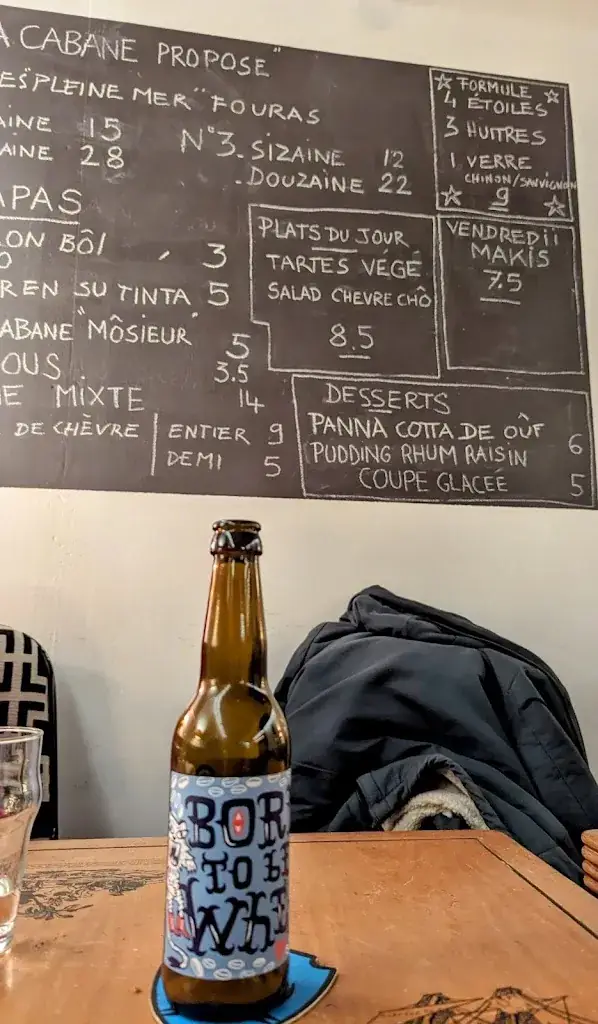 A CABANE PROPOSE"
ES "PLEINE MER" FOURAS
AINE 15
AINE 28
N°3. SIZAINE 12
- DOUZAINE 22
FORMULE
4 ÉTOILES
3 HUITRES
1 VERRE
CHINON/SAUVIGNON
9
APAS
ON BÔL 3
O
REN SU TINTA 5
ABANE "MÔSIEUR 5
OUS 3.5
E MIXTE 14
DE CHÈVRE
ENTIER 9
DEMI 5
PLATS DU JOUR
TARTES VÉGÉ
SALAD CHEVRE CHÔ
8.5
VENDREDii
MAKIS
7.5
DESSERTS
PANNA COTTA DE OÛF 6
PUDDING RHUM RAISIN
COUPE GLACÉE 5
BOR
TO BE
WHI